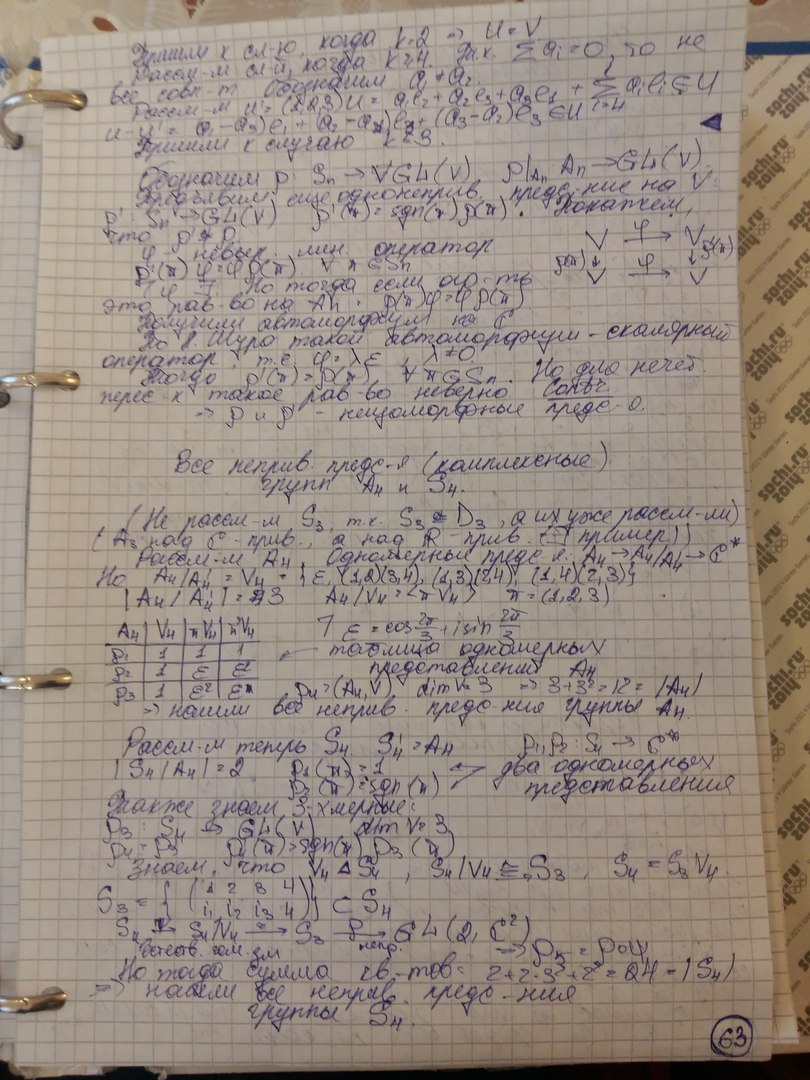 Пришли к сл-ю, когда k=2 ⇒ U=V
Рассм-м сл-й, когда k≥4. Т.к. ∑ai=0, то не
все совп-т. Обозначим a1≠a2.
Рассм-м u'=(1,2,3)u = a1e2+a2e3+a3e1 + ∑i=4 aiei ∈ U
u-u' = (a1-a3)e1+(a2-a1)e2+(a3-a2)e3 ∈ U
Пришли к случаю k≤3.
Обозначим ρ: Sn→GL(V) ρ|An: An→GL(V)
Предъявим еще одно неприв. предс-ние на V
ρ': Sn→GL(V) ρ'(π)=sgn(π)ρ(π). Покажем,
что ρ'≇ρ
φ - невыр. лин. оператор
ρ'(π)φ=φρ(π) ∀ π∈Sn
V φ→ V
ρ(π)↓ φ ↓ρ'(π)
V → V
Но тогда если огр-ть
это рав-во на An: ρ(π)φ=φρ(π)
Получили автоморфизм на C
По л. Шура такой автоморфизм - скалярный
оператор, т.е. φ=λε, λ≠0
Тогда ρ'(π)=ρ(π) ∀π∈Sn. Но для нечет.
перес-к такое рав-во неверно
⇒ ρ и ρ' - неизоморфные предс-я.
Все неприв. предс-я (комплексные)
групп A4 и S4.
(Не рассм-м S3, т.к. S3≅D3, а их уже рассм-ли)
(A3 над C - прив., а над R - прив. (пример))
Рассм-м A4, Одномерные предс-я: A4→A4/A4'→C*
Но A4' = V4 = {ε, (1,2)(3,4), (1,3)(2,4), (1,4)(2,3)}
|A4/A4'|=3 A4/V4=<πV4> π=(1,2,3)
A4 | V4 | πV4 | π²V4
ρ1 | 1 | 1 | 1
ρ2 | 1 | ε | ε²
ρ3 | 1 | ε² | ε
ε=cos 2π/3 + i sin 2π/3
← таблица одномерных
представлений A4
ρ4=(A4,V) dimV=3 ⇒ 3+3²=12=|A4|
⇒ нашли все неприв. предс-ния группы A4.
Рассм-м теперь S4. S4'=A4 ρ1,ρ2: S4→C*
|S4/A4|=2 ρ1(π)=1
ρ2(π)=sgn(π)
два одномерных
представления
Также знаем 3-хмерные:
ρ3: S4→GL(V) dimV=3
ρ4=ρ3' ρ4(π)=sgn(π)ρ3(π)
Знаем, что V4 ⊲ S4, S4/V4≅S3, S4=S3V4
S3={(1 2 3 4 / i1 i2 i3 4)} ⊂ S4
S4 → S4/V4 → S3 ρ→ GL(2, C²)
естеств. гом-зм непр. ⇒ρ5=
Но тогда сумма кв-тов = 2+2·3²+2²=24=|S4|
⇒ нашли все неприв. предс-ния
группы S4.
63
sochi.ru
2014